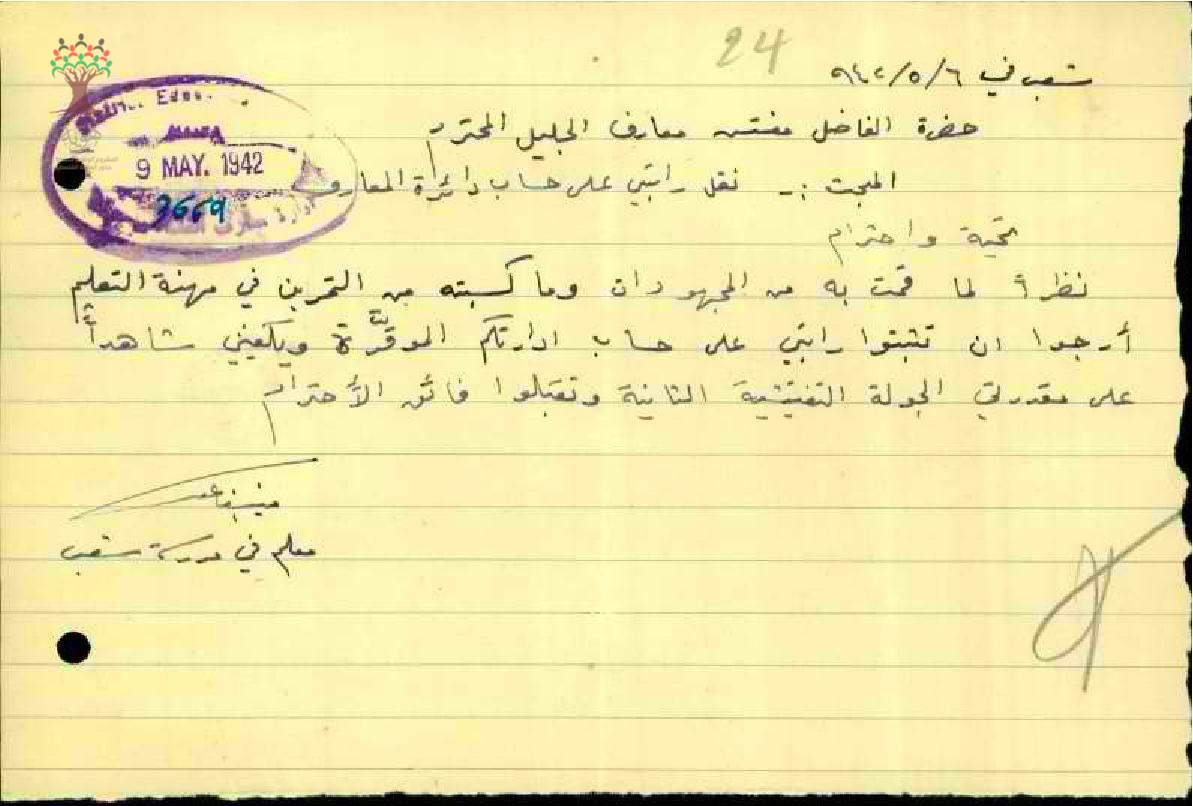 24
شعب في ٦/٥/٩٤٢
حضرة الفاضل مفتش معارف الجليل المحترم
9 MAY. 1942
3669
المبحث :- نقل راتبي على حساب دائرة المعارف
تحية واحترام
نظراً لما قمت به من المجهودات وما كسبته من التمرين في مهنة التعليم
أرجوا ان تثبتوا راتبي على حساب ادارتكم الموقرّة ويكفيني شاهداً
على مقدرتي الجولة التفتيشية الثانية وتقبلوا فائق الأحترام
معلم في مدرسة شعب